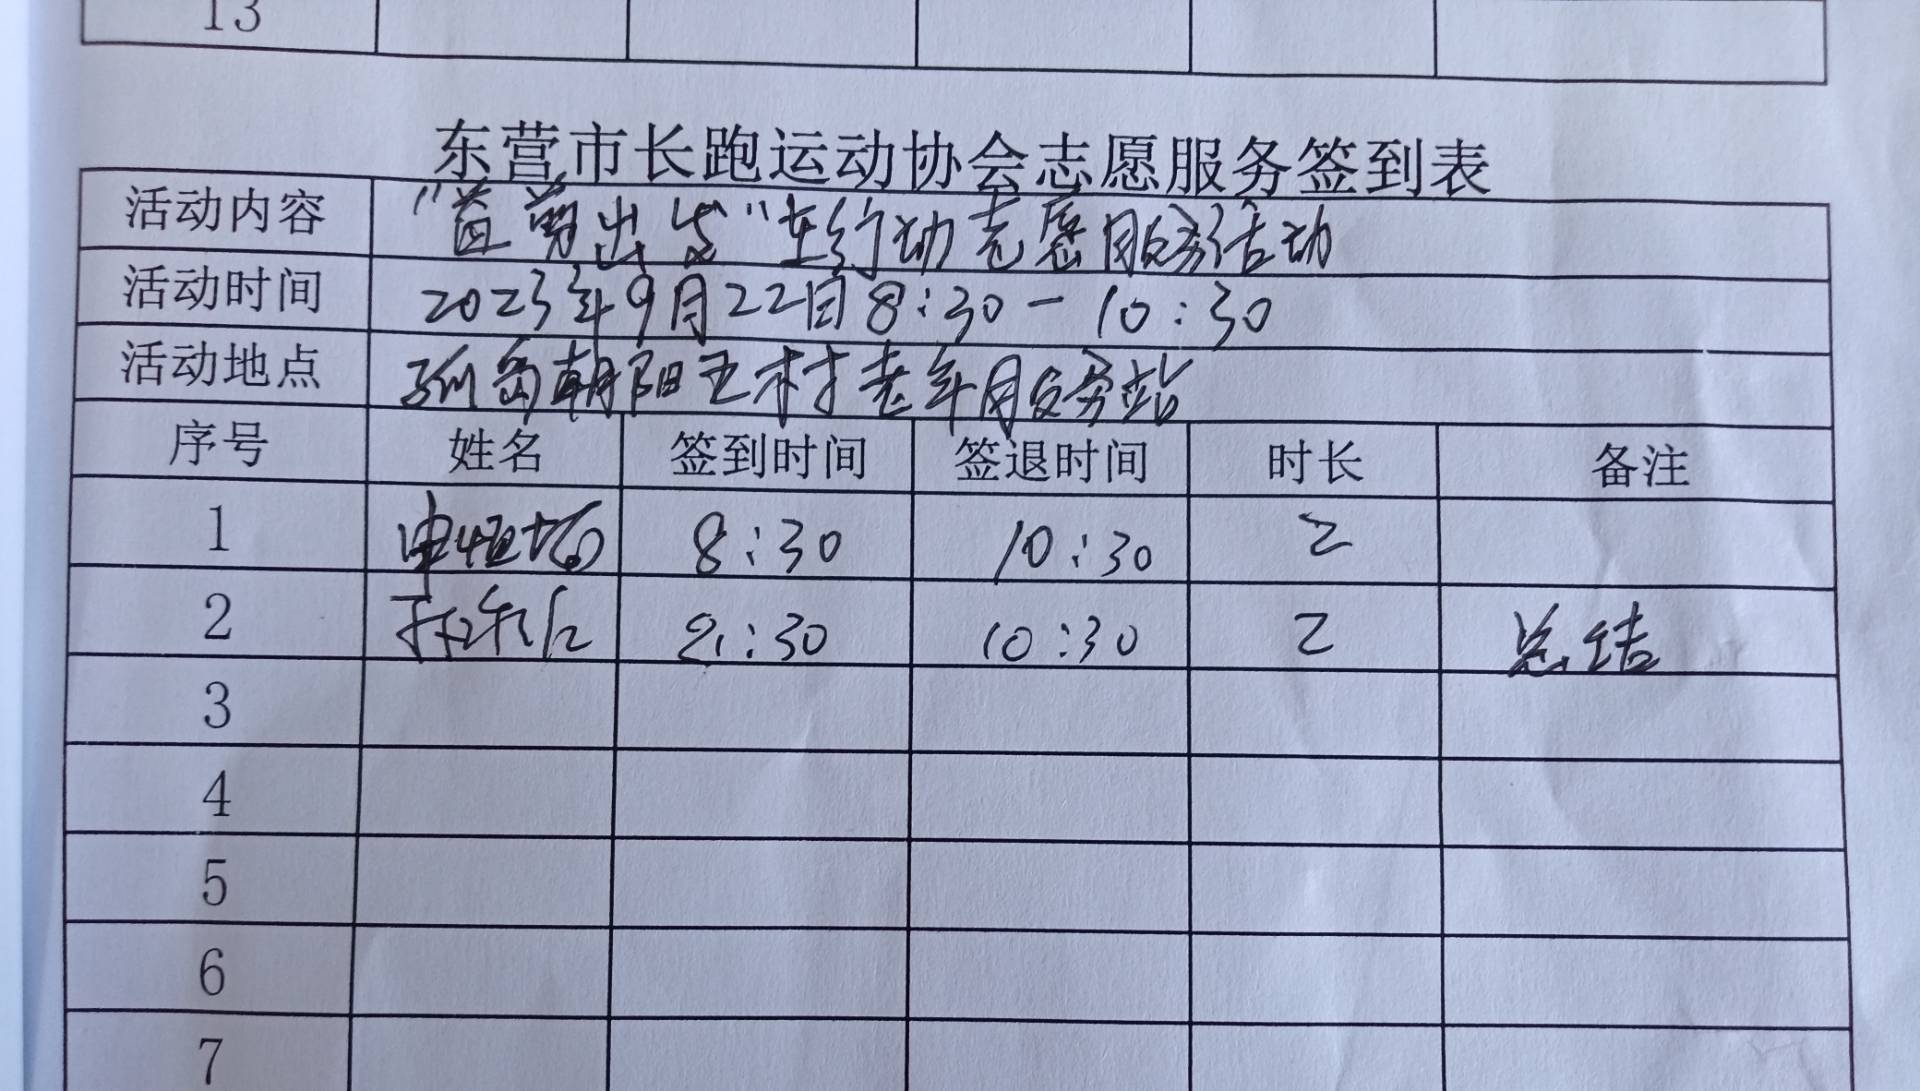 13
东营市长跑运动协会志愿服务签到表
活动内容 "首剪出发"在行动志愿服务活动
活动时间 2023年9月22日8:30-10:30
活动地点 孤岛朝阳五村老年服务站
序号 姓名 签到时间 签退时间 时长 备注
1 8:30 10:30 2
2 8:30 10:30 2 总结
3
4
5
6
7